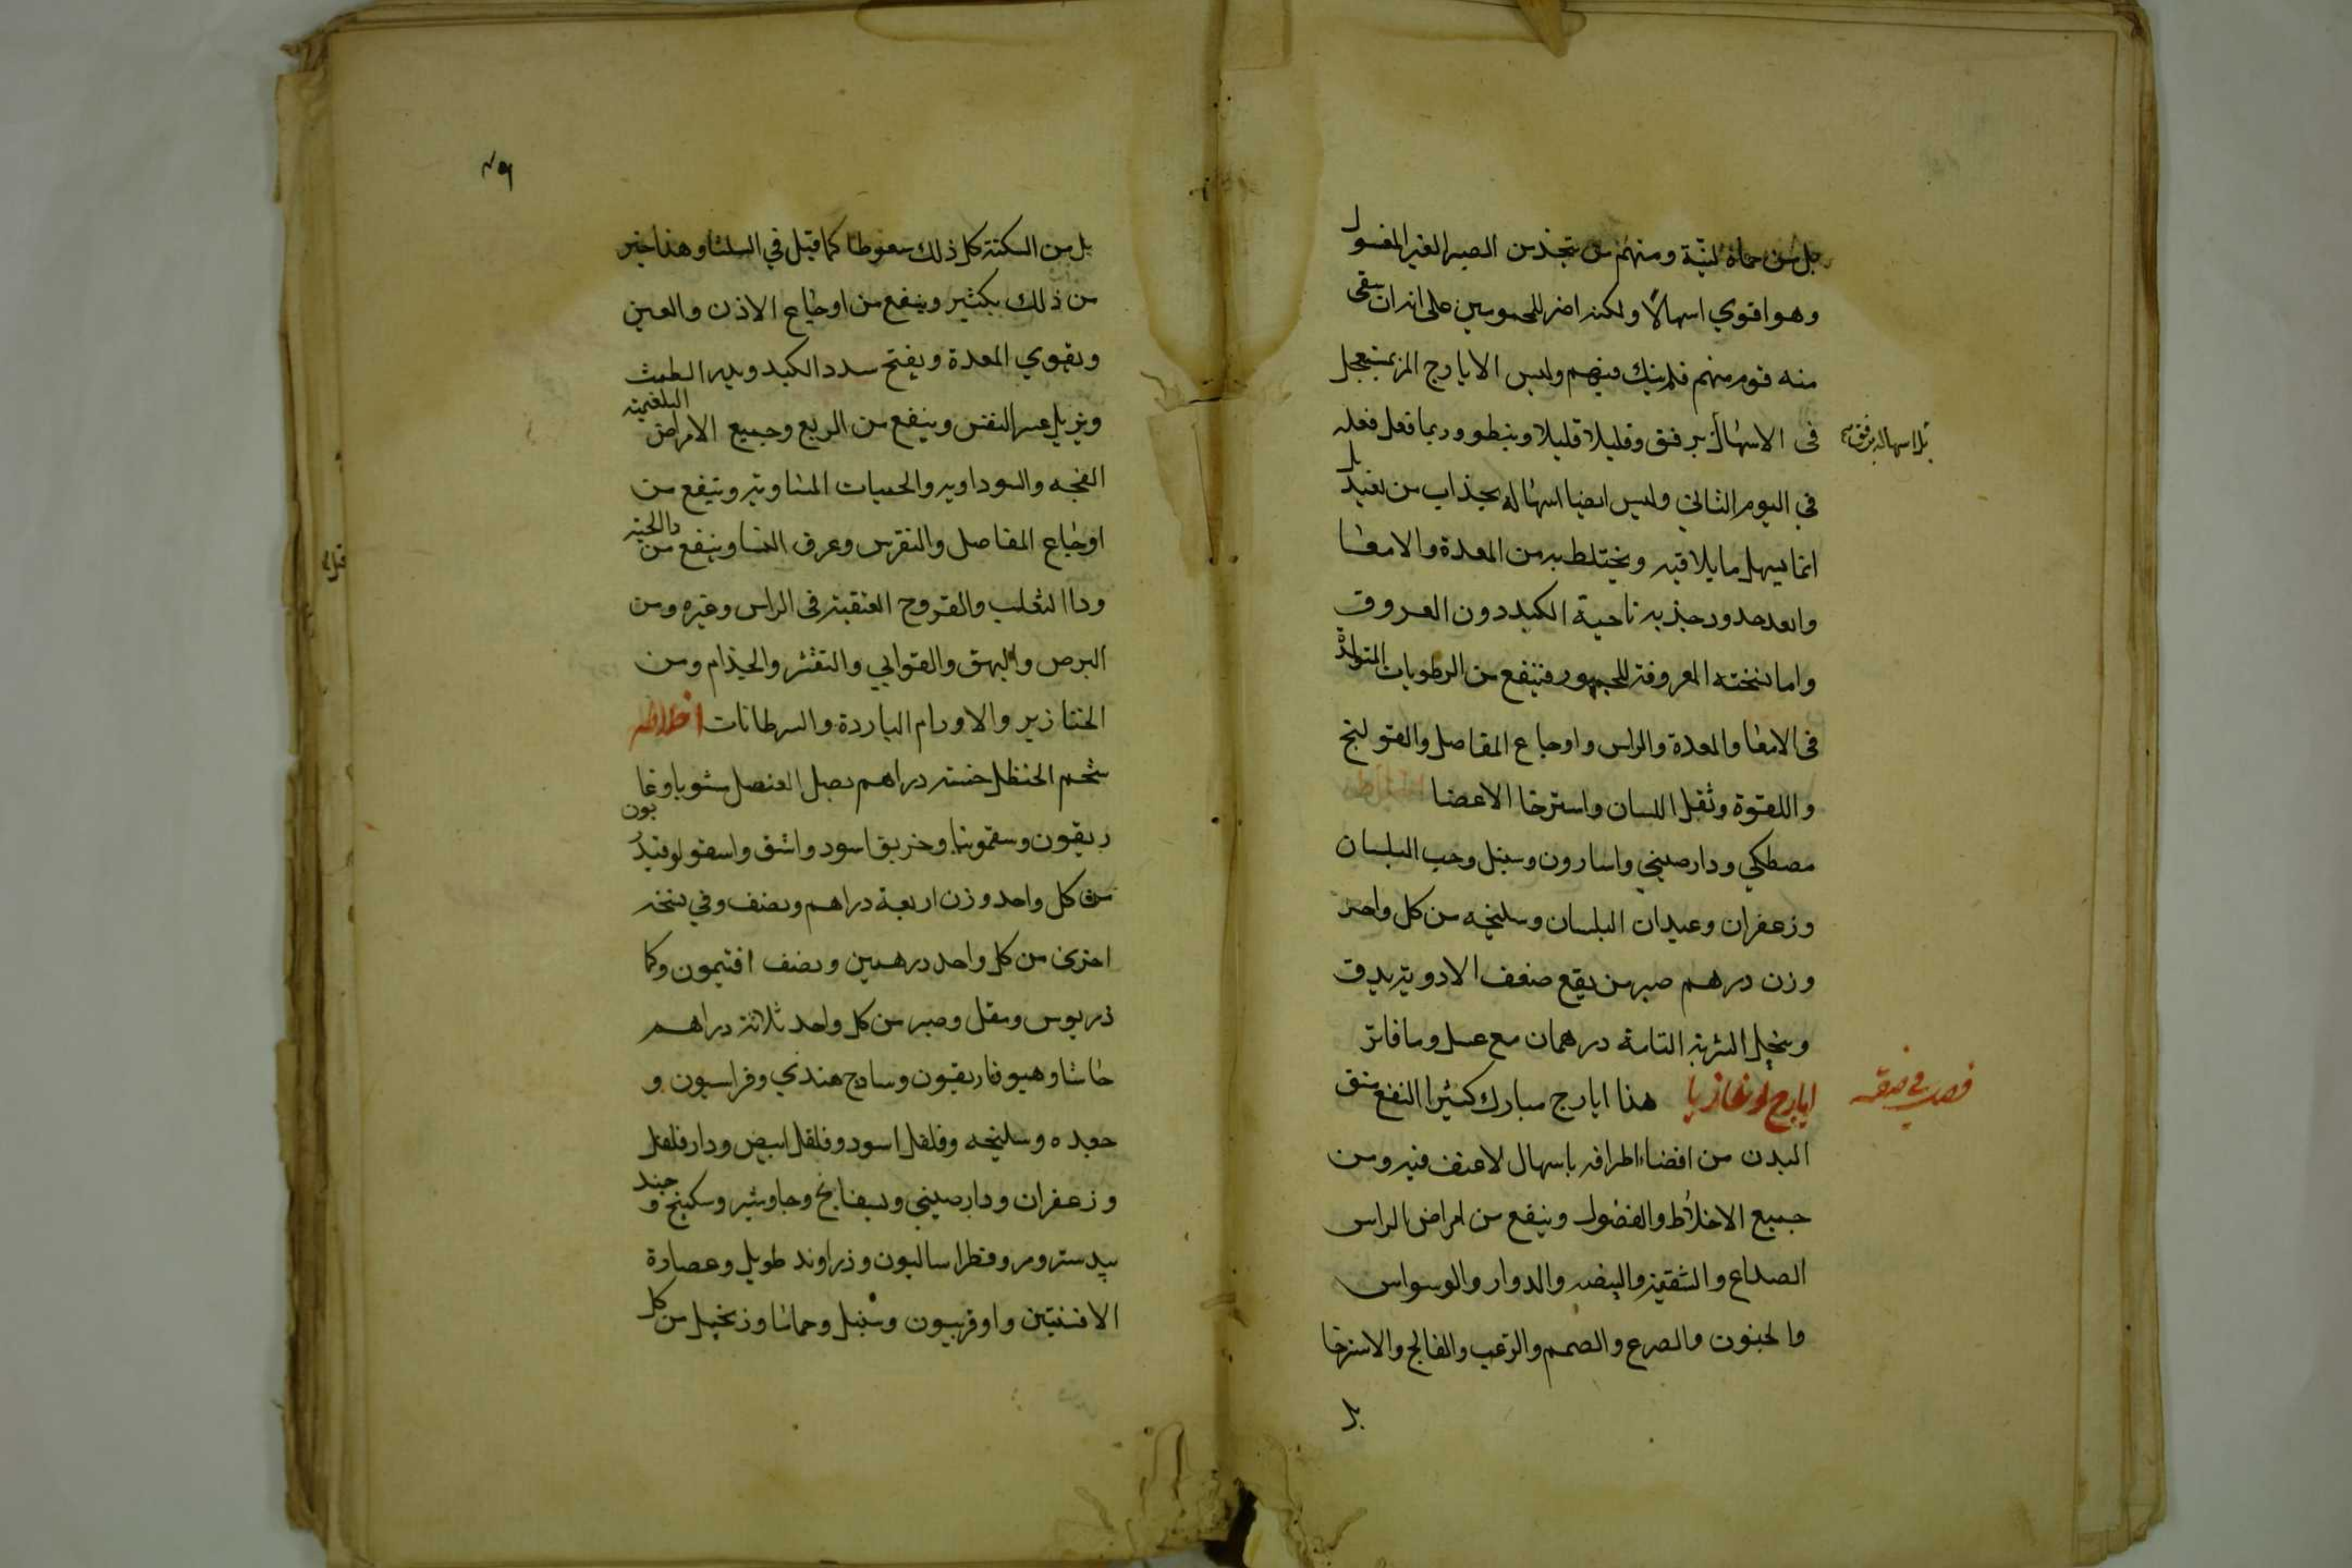 بل من حماه لينة ومنهم من يتخذ من الصبر الغير المغسول
وهو اقوي اسهالا ولكنه اضر للمحمومين على انه ان سقى
منه قوم منهم فلم ينك فيهم وليس الايارج المر بمستعجل
فى الاسهال برفق وقليلا قليلا وبنطو وربما فعل فعله
بل اسهاله برفق
في اليوم الثاني وليس ايضا اسهاله بجذاب من بعيد بل
انما يسهل ما يلاقيه ويختلط به من المعدة والامعا
وابعد حدود جذبه ناحية الكبد دون العروق
واما نسخته المعروفة للجمهور فتنفع من الرطوبات المتولدة
فى الامعا والمعدة والراس واوجاع المفاصل والقولنج
واللقوة وثقل اللسان واسترخا الاعضا
مصطكي ودارصيني واسارون وسنبل وحب البلسان
وزعفران وعيدان البلسان وسليخه من كل واحد
وزن درهم صبر من يقع ضعف الادوية يدق
وينخل الشربة التامة درهمان مع عسل وما فاتر
فصل في صنعة
ايارج لوغاذيا هذا ايارج مبارك كثيرا النفع ينق
البدن من افضاء اطرافه باسهال لا عنف فيه ومن
جميع الاخلاط والفضول وينفع من امراض الراس
الصداع والشقيقة والبيضه والدوار والوسواس
والجنون والصرع والصمم والرعب والفالج والاسترخا
بل
بل من السكتة كل ذلك سعوطا كما قيل في السلثا وهذا خير
من ذلك بكثير وينفع من اوجاع الاذن والعين
ويقوي المعدة ويفتح سدد الكبد ويدر الطمث
ويزيل عسر النفس وينفع من الربع وجميع الامراض البلغمية
الفجه والسوداويه والحميات المتناوبة وينفع من
اوجاع المفاصل والنقرس وعرق النسا وينفع من دا الحية
ودا الثعلب والقروح العتيقة فى الراس وغيره ومن
البرص والبهق والقوابي والتقشر والجذام ومن
الخنازير والاورام الباردة والسرطانات اخلاطه
شحم الحنظل خمسة دراهم بصل العنصل مشويا وغا
ريقون وسقمونيا وخربق اسود واشق واسقولوقندريون
من كل واحد وزن اربعة دراهم ونصف وفي نسخه
اخرى من كل واحد درهمين ونصف افتيمون وكما
ذريوس ومقل وصبر من كل واحد ثلاثة دراهم
حاشا وهيوفاريقون وسادج هندي وفراسيون و
جعده وسليخه وفلفل اسود وفلفل ابيض ودارفلفل
وزعفران ودارصيني وبسفايج وجاوشير وسكبنج وجند
بيدستر ومر وفطراساليون وزراوند طويل وعصارة
الافسنتين واوفربيون وسنبل وحماما وزنجبيل من كل